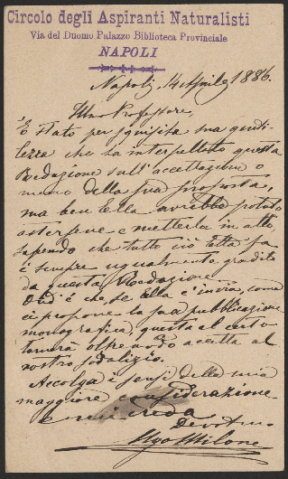 Circolo degli Aspiranti Naturalisti
Via del Duomo Palazzo Biblioteca Provinciale
NAPOLI
Napoli, 14 Aprile 1886.
Illmo Professore,
È stato per squisita sua genti-
lezza che ha interpellato questa
Redazione sull'accettazione o
meno della sua proposta,
ma ben Ella avrebbe potuto
e metterla in atto,
sapendo che tutto ciò ch'Ella fa
è sempre ugualmente gradito
da questa Redazione
è che, se Ella c'invia, come
ci propone la sua pubblicazione
monografica, questa al certo
tornerà oltremodo accetta al
nostro sodalizio.
Accolga i sensi della mia
maggiore considerazione
e mi creda
Devotmo
Ugo Milone